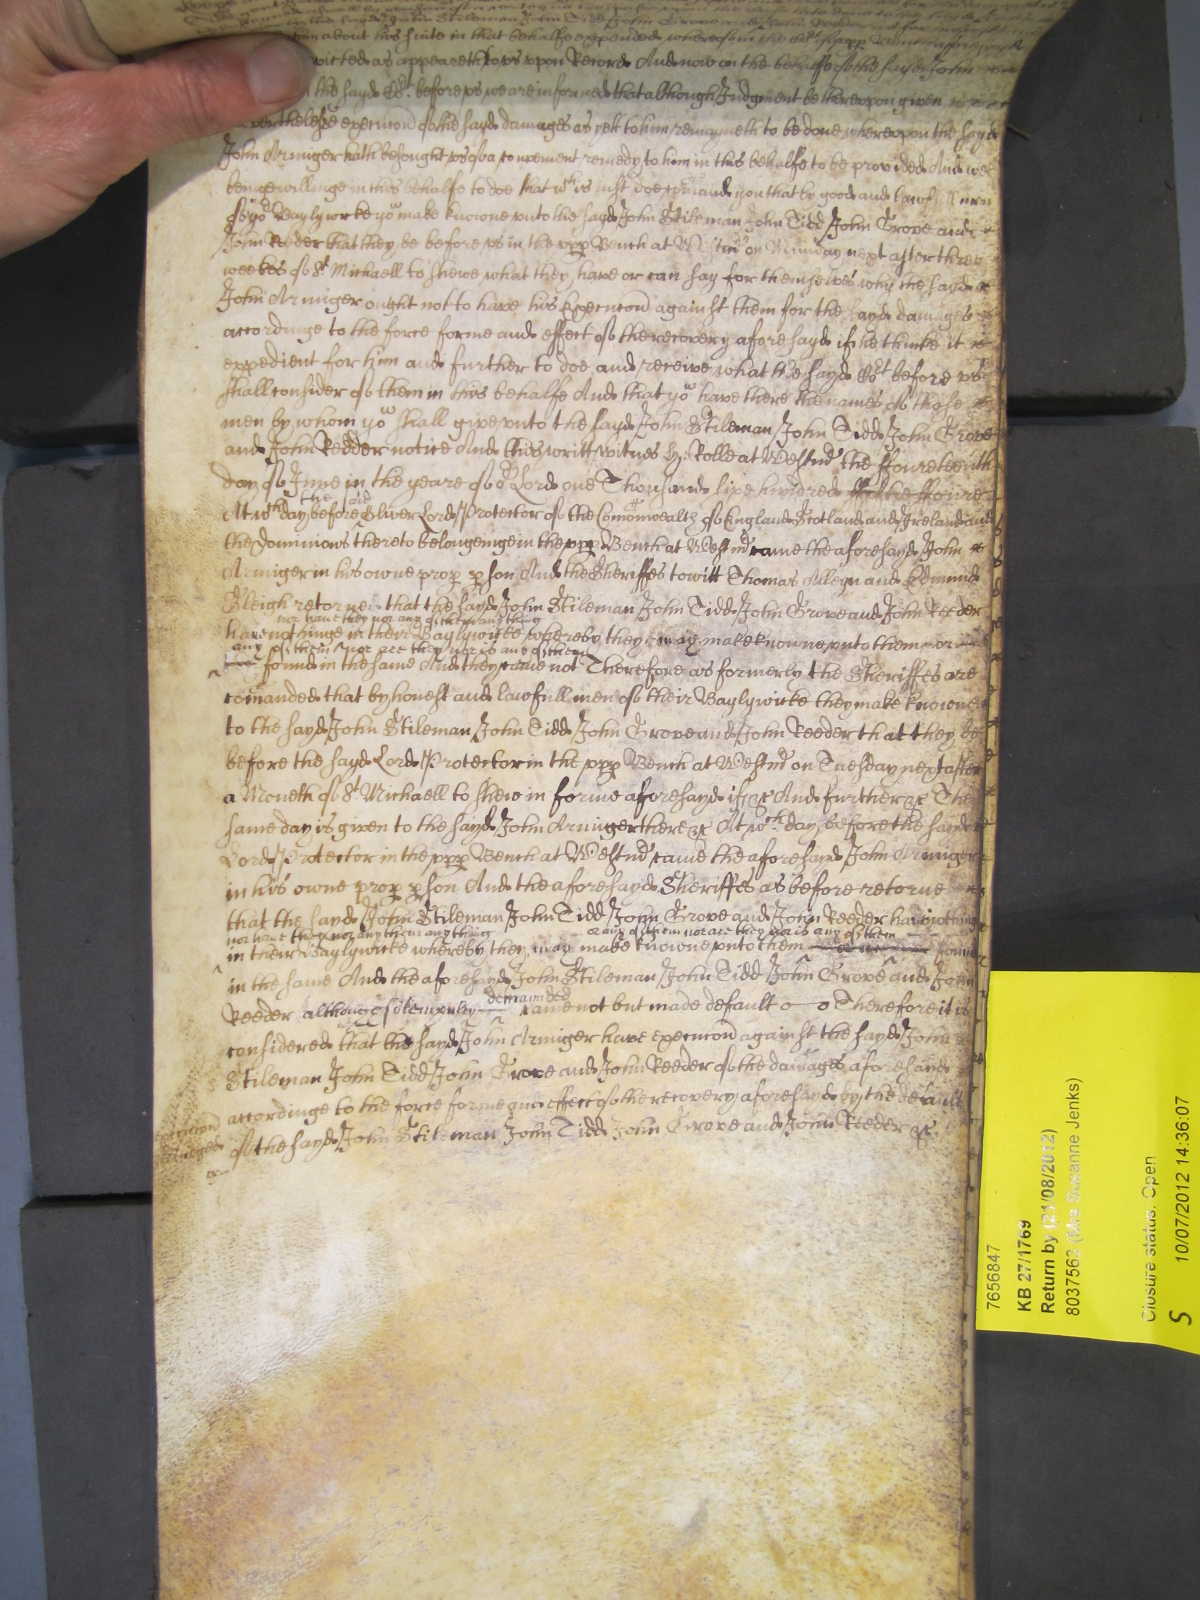 the sayd John Stileman John Tidd John Grove and John Reeder
about his suite in that behalfe expended whereof in the Co:rt
victed as appeareth to us upon Record And now on the behalfe of the sayd John
the sayd Co:rt before us we are informed that although Judgment be thereupon given
nevertheless execucion of the sayd damages as yett to him remayneth to be done whereupon the sayd
John Armiger hath besought us of a convenient remedy to him in this behalfe to be provided And wee
beinge willinge in this behalfe to doe that w:ch is just doe comand you that by good and lawf
of yo:r Baylywicke yo:u make knowne unto the sayd John Stileman John Tidd John Grove and
John Reeder that they be before us in the upp Bench at Westm:r on Munday next after three
weekes of S:t Michaell to shewe what they have or can say for themselves why the sayd
John Armiger ought not to have his Execucion against them for the sayd damages
accordinge to the force forme and effect of the recovery aforesayd if he thinke it
expedient for him and further to doe and receive what the sayd Co:rt before us
shall consider of them in this behalfe And that yo:u have there the names of those
men by whom yo:u shall give unto the sayd John Stileman John Tidd John Grove
and John Reeder notice And this writt witnes H: Rolle at Westm:r the ffoureteenth
day of June in the yeare of o:r Lord one Thousand sixe hundred ffiftie ffoure
At w:ch day before the said Oliver Lord Protector of the Comonwealth of England Scotland and Ireland and
the dominions thereto belongeinge in the upp Bench at Westm:r came the aforesayd John
Armiger in his owne prop pson And the Sheriffes towitt Thomas Alleyn and Edmund
Sleigh retorne that the sayd John Stileman John Tidd John Grove and John Reeder
nor have they nor any of them any thing
have nothinge in their Baylywicke whereby they may make knowne unto them nor
any of them nor are they nor is any of them
found in the same And they came not Therefore as formerly the Sheriffes are
comanded that by honest and lawfull men of their Baylywicke they make knowne
to the sayd John Stileman John Tidd John Grove and John Reeder that they be
before the sayd Lord Protector in the upp Bench at Westm:r on Tuesday next after
a Moneth of S:t Michaell to shew in forme aforesayd if &c And further &c The
same day is given to the sayd John Armiger there &c At w:ch day before the sayd
Lord Protector in the upp Bench at Westm:r came the aforesayd John Armiger
in his owne prop pson And the aforesayd Sheriffes as before retorne
that the sayd John Stileman John Tidd John Grove and John Reeder have nothing
nor have they nor any them any thing or any of them nor are they nor is any of them
in their Baylywicke whereby they may make knowne unto them found
in the same And the aforesayd John Stileman John Tidd John Grove and John
Reeder although solempnley demainded came not but made default Therefore it is
considered that the sayd John Armiger have execucion against the sayd John
Stileman John Tidd John Grove and John Reeder of the damages aforesayd
accordinge to the force forme and effect of the recovery aforesayd by the default
of the sayd John Stileman John Tidd John Grove and John Reeder &c
7656847
KB 27/1769
Return by (21/08/2012)
8037562 (Mrs Susanne Jenks)
Closure status: Open
10/07/2012 14:36:07
S